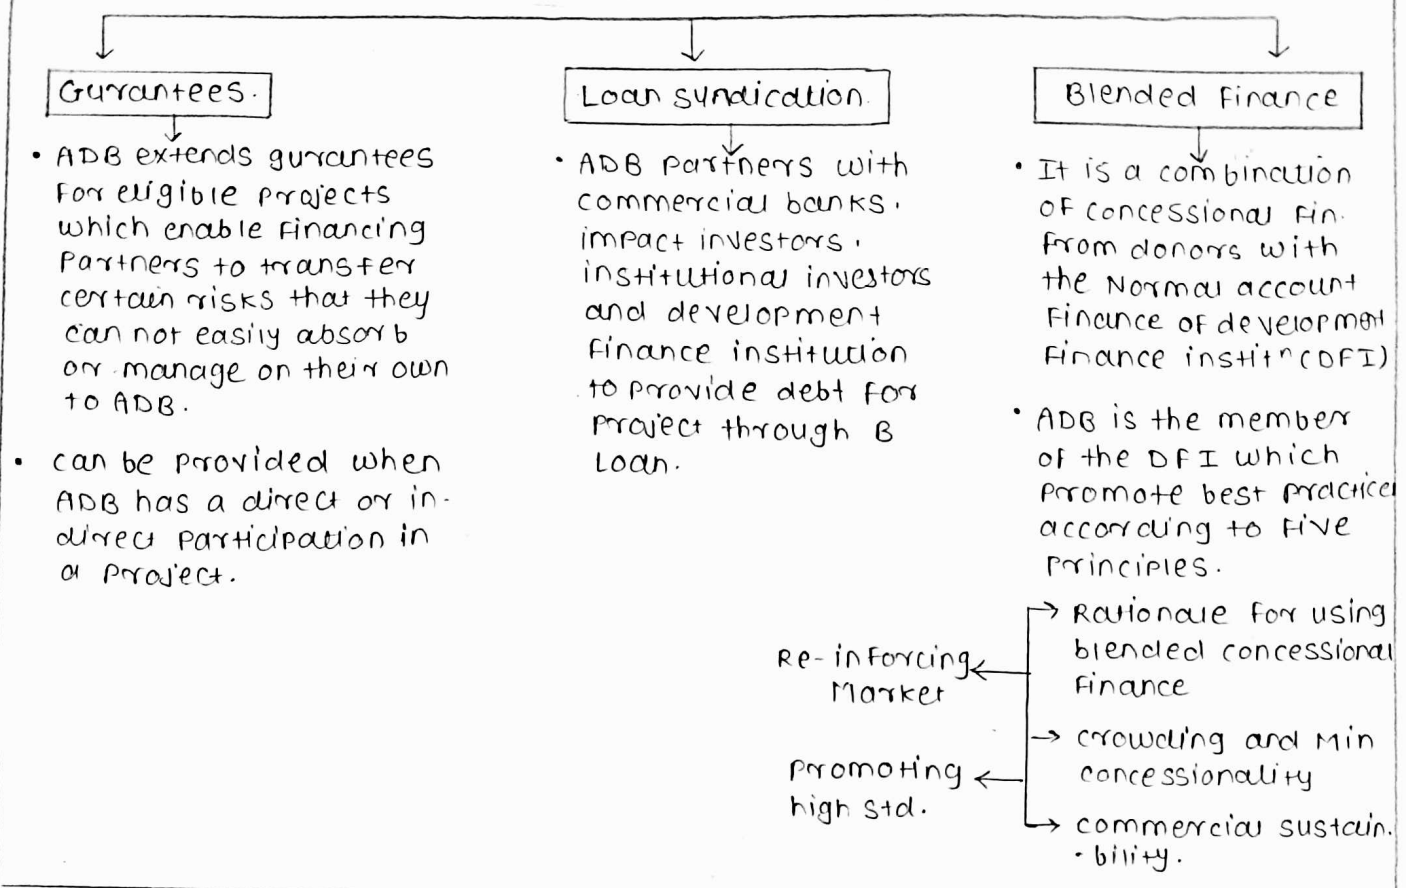 Gurantees.
• ADB extends gurantees
for eligible projects
which enable financing
partners to transfer
certain risks that they
can not easily absorb
or manage on their own
to ADB.
• can be provided when
ADB has a direct or in-
direct participation in
a project.
Loan syndication.
• ADB partners with
commercial banks,
impact investors,
institutional investors
and development
finance institution
to provide debt for
project through B
Loan.
Blended Finance
• It is a combination
of concessional fin.
from donors with
the Normal account
finance of development
finance institⁿ (DFI)
• ADB is the member
of the DFI which
promote best practice
according to five
principles.
→ Rationale for using
blended concessional
finance
→ crowding and Min
concessionality
→ commercial sustain.
• bility.
Re-inforcing
Market
promoting
high std.